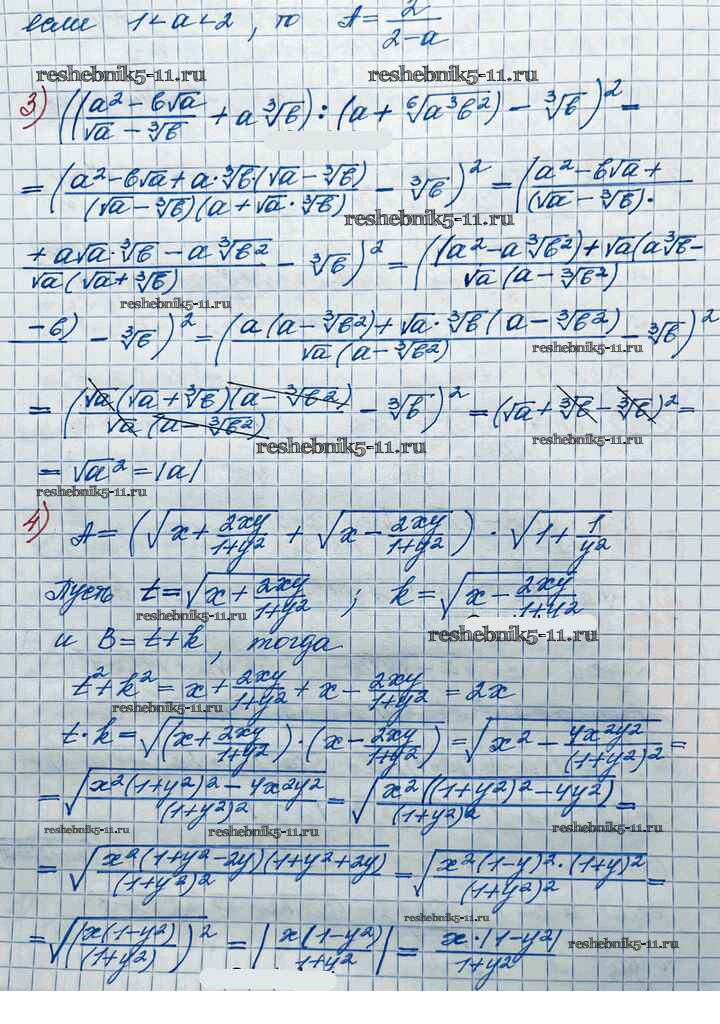 если 1<a<2, то A=2/(2-a)
reshebnik5-11.ru reshebnik5-11.ru
3) (((a²-b√a)/(√a-∛b) + a∛b) : (a + ⁶√(a³b²)) - ∛b)² =
= ((a²-b√a+a·∛b(√a-∛b))/((√a-∛b)(a+√a·∛b)) - ∛b)² = ((a²-b√a+/(√a-∛b)·
reshebnik5-11.ru
+a√a·∛b-a∛b²)/(√a(√a+∛b)) - ∛b)² = (((a²-a∛b²)+√a(a∛b-/√a(a-∛b²)
reshebnik5-11.ru
-b) - ∛b)² = ((a(a-∛b²)+√a·∛b(a-∛b²))/(√a(a-∛b²)) - ∛b)²
reshebnik5-11.ru
= ((√a(√a+∛b)(a-∛b²))/(√a(a-∛b²)) - ∛b)² = (√a+∛b-∛b)² =
reshebnik5-11.ru reshebnik5-11.ru
= √a² = |a|
reshebnik5-11.ru
4) A = (√(x+2xy/(1+y²)) + √(x-2xy/(1+y²))) · √(1+1/y²)
Пусть t=√(x+2xy/(1+y²)); k=√(x-2xy/(1+y²))
reshebnik5-11.ru
и B=t+k, тогда
reshebnik5-11.ru
t²+k² = x+2xy/(1+y²) + x-2xy/(1+y²) = 2x
reshebnik5-11.ru
t·k = √((x+2xy/(1+y²))·(x-2xy/(1+y²))) = √(x²-4x²y²/(1+y²)²) =
= √((x²(1+y²)²-4x²y²)/(1+y²)²) = √((x²((1+y²)²-4y²)/(1+y²)²) =
reshebnik5-11.ru reshebnik5-11.ru reshebnik5-11.ru
= √((x²(1+y²-2y)(1+y²+2y))/(1+y²)²) = √((x²(1-y)²·(1+y)²)/(1+y²)²) =
reshebnik5-11.ru
= √((x(1-y²)/(1+y²))²) = |x(1-y²)/(1+y²)| = x·|1-y²|/(1+y²)
reshebnik5-11.ru